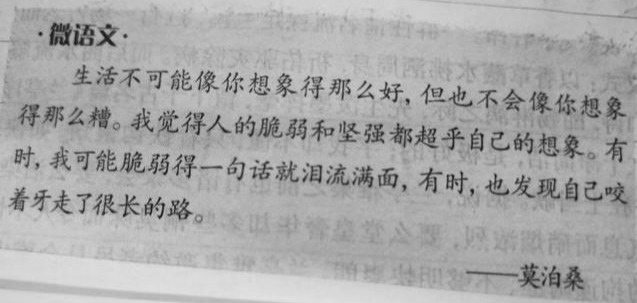 ·微语文·
生活不可能像你想象得那么好，但也不会像你想象
得那么糟。我觉得人的脆弱和坚强都超乎自己的想象。有
时，我可能脆弱得一句话就泪流满面，有时，也发现自己咬
着牙走了很长的路。
——莫泊桑